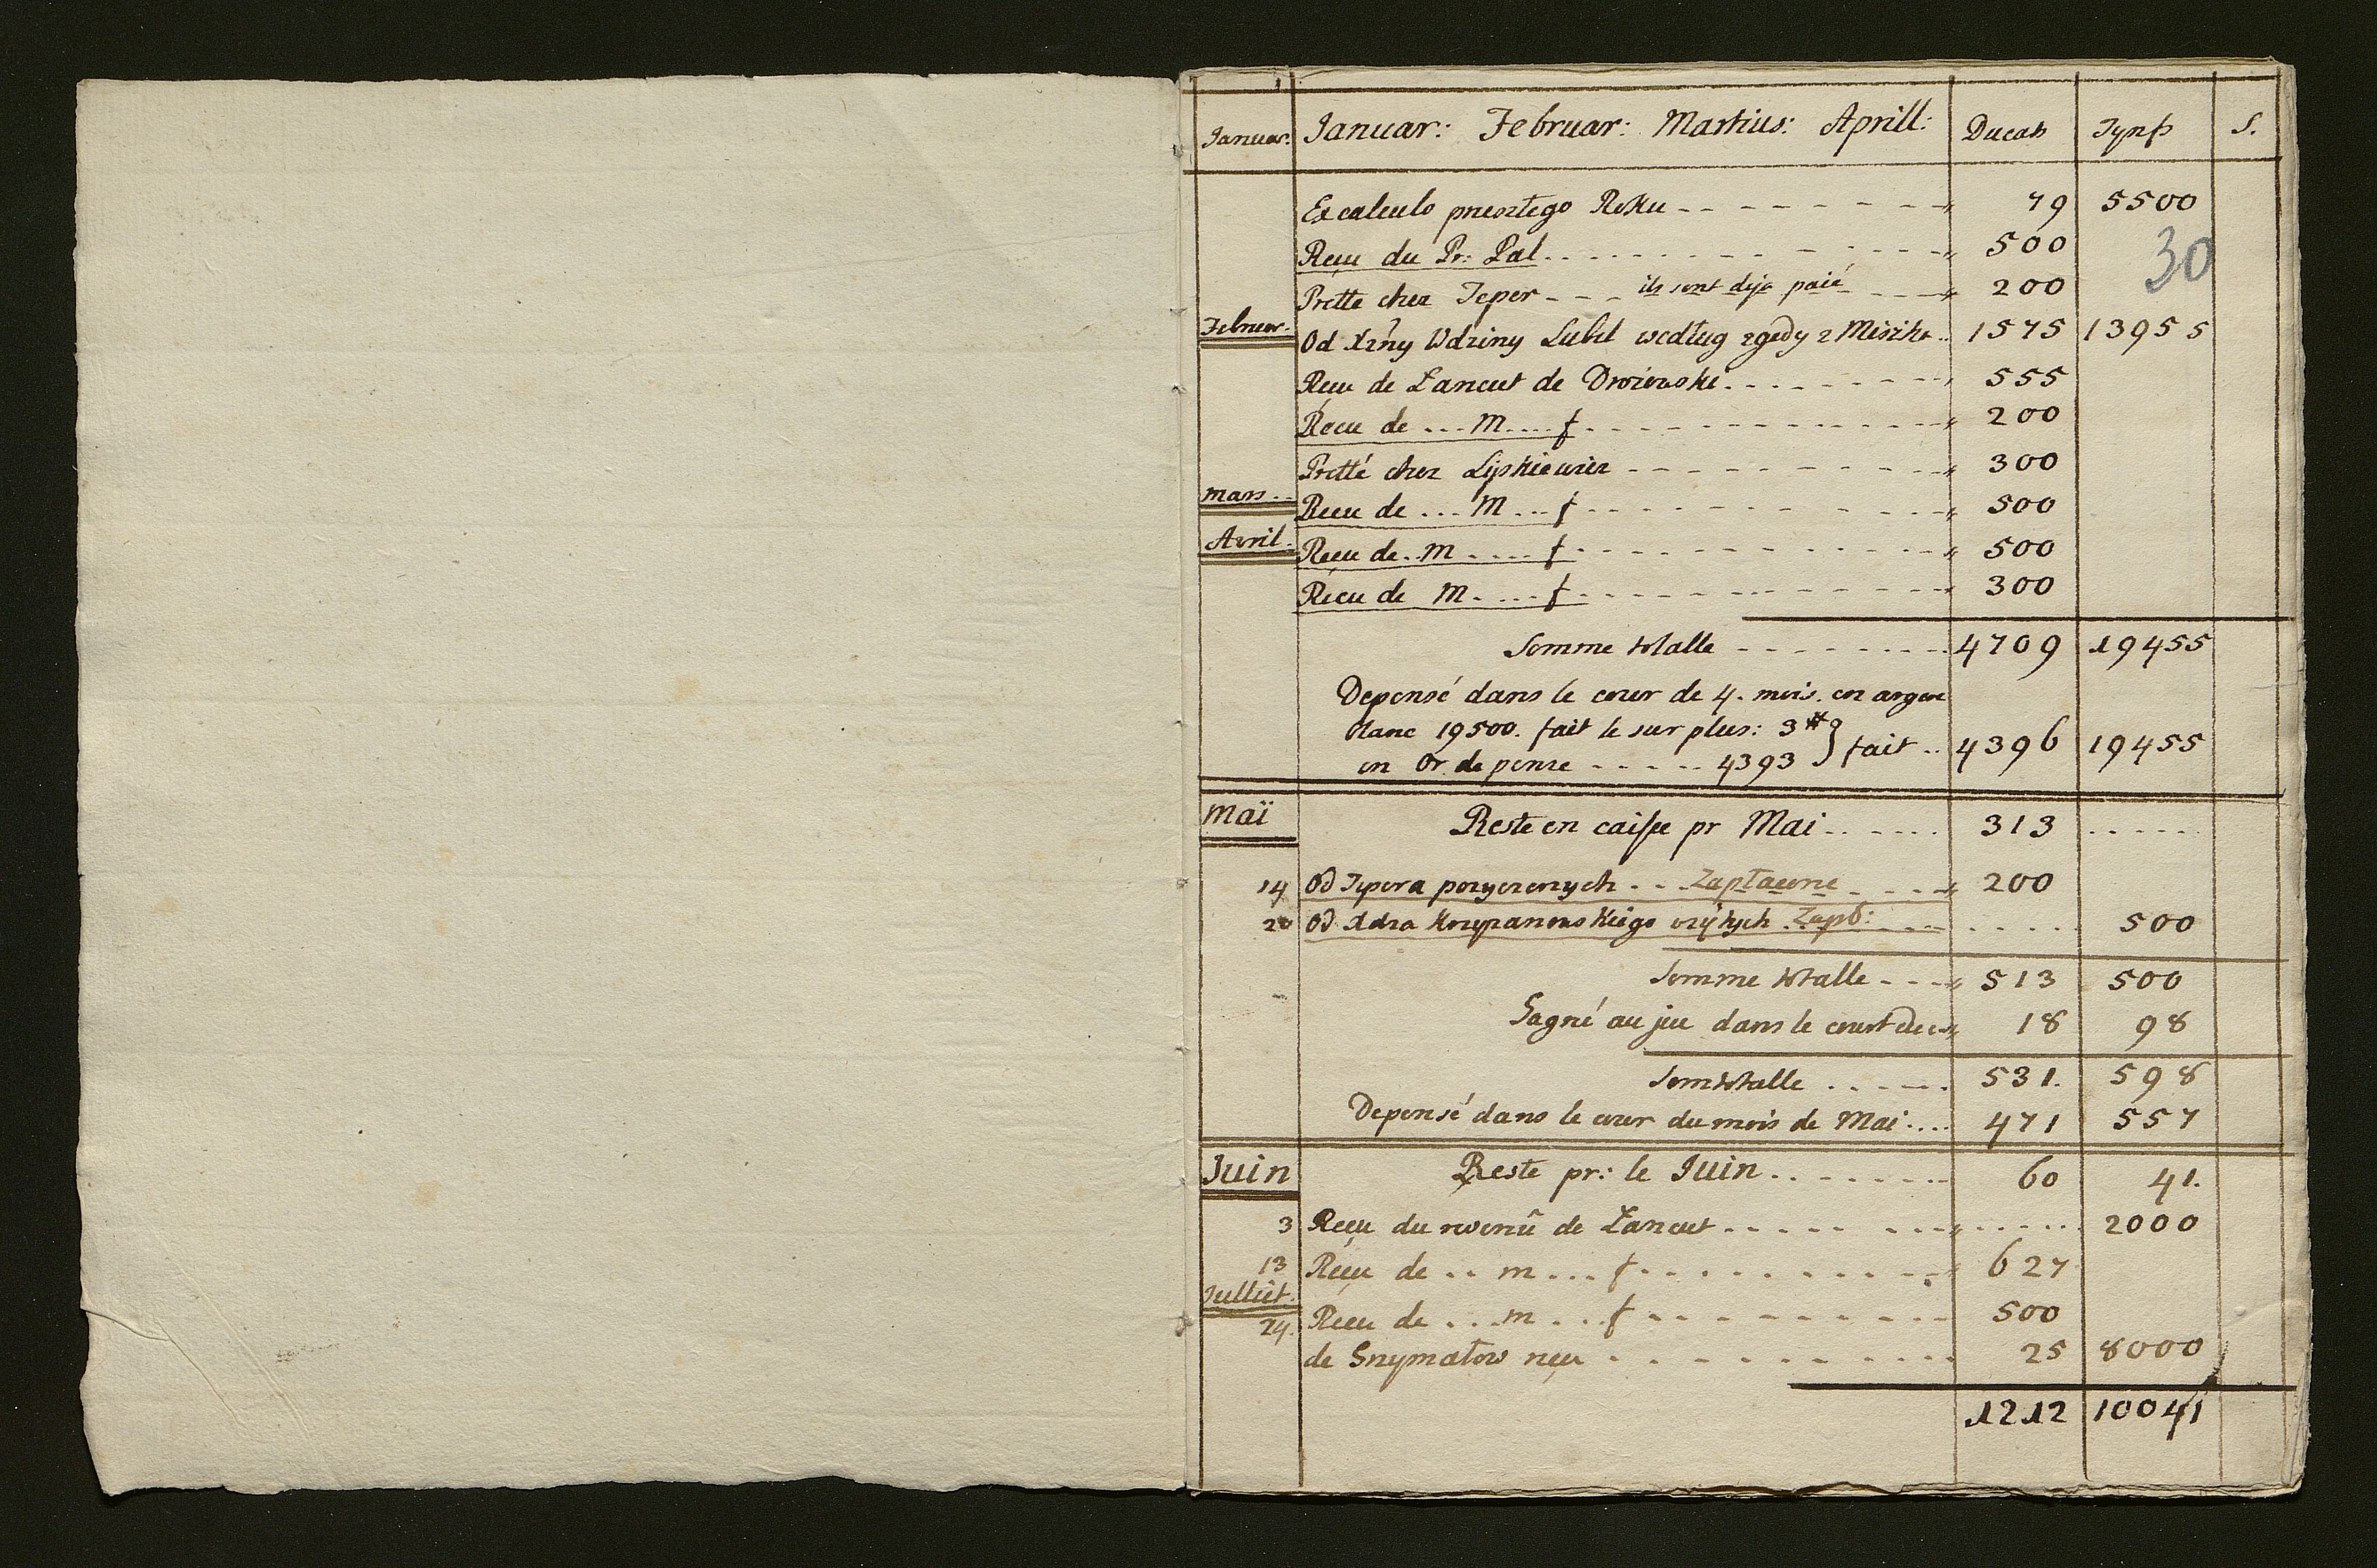 Januar: Januar: Februar: Martius: Aprill: Ducats Tynfs S.
Ex calculo przeszłego Roku 79 5500
Reçu du Pr: Pal 500
30
Pretté chez Teper ils sont deja paié 200
Februar: Od Xżny Wdziny Lubel według zgody z 1575 13955
Reçu de Łancut de 555
Reçu de ... m .... f 200
Pretté chez Lipkiewicz 300
Mars Reçu de ... m ... f 500
Avril Reçu de .. m .... f 500
Reçu de m .... f 300
Somme totalle 4709 19455
Depensé dans le cour de 4. mois. en argent
blanc 19500. fait le surplus: 3 #
en Or depense 4393 } fait .. 4396 19455
Maï Reste en caisse pr Mai 313
14 Od Tepera pozyczonych Zapłacone 200
20 Od Xdza wziętych Zapł: 500
Somme totalle 513 500
Gagné au jeu dans le court 18 98
Som totalle 531. 598
Depensé dans le cour du mois de Mai 471 557
Juin Reste pr: le Juin 60 41.
3 Reçu du revenû de Łancut 2000
13 Reçu de .. m ... f 627
Julliet.
24. Reçu de ... m ... f 500
de Grzymałow reçu 25 8000
1212 10041